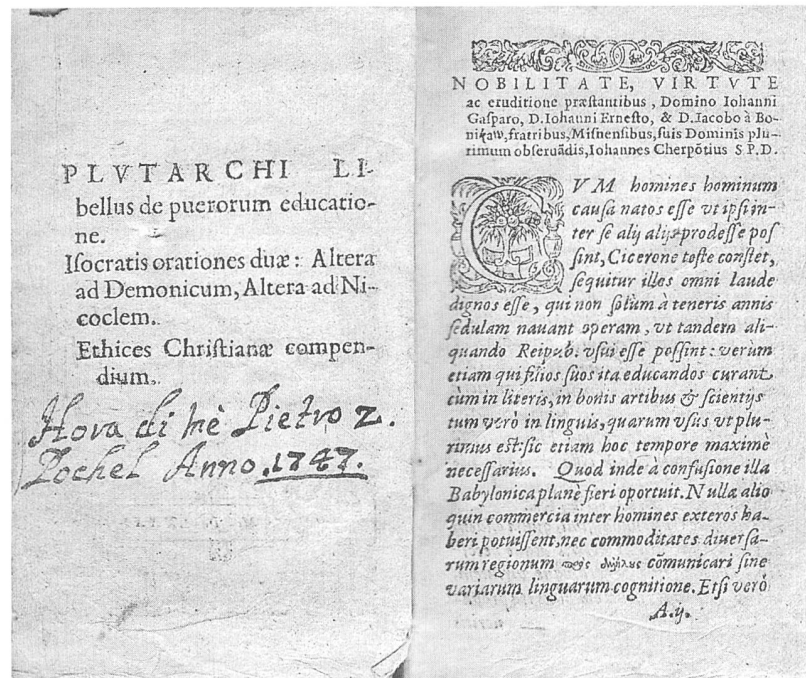 PLVTARCHI LI-
bellus de puerorum educatio-
ne.
Isocratis orationes duæ: Altera
ad Demonicum, Altera ad Ni-
coclem.
Ethices Christianæ compen-
dium.
Hora di mè Pietro Z.
Zochel Anno 1747.
NOBILITATE, VIRTVTE
ac eruditione præstantibus, Domino Iohanni
Gasparo, D. Iohanni Ernesto, & D. Iacobo à Bo-
nikaw, fratribus, Misnensibus, suis Dominis plu-
rimum obseruãdis, Iohannes Cherpõtius S P. D.
CVM homines hominum
causa natos esse vt ipsi in-
ter se alij alijs prodesse pos
sint, Cicerone teste constet,
sequitur illos omni laude
dignos esse, qui non solùm à teneris annis
sedulam nauant operam, vt tandem ali-
quando Reipub. vsui esse possint: verùm
etiam qui filios suos ita educandos curant
cùm in literis, in bonis artibus & scientijs
tum verò in linguis, quarum vsus vt plu-
rimus est: sic etiam hoc tempore maximè
necessarius. Quod inde à confusione illa
Babylonica planè fieri oportuit. Nulla alio
quin commercia inter homines exteros ha-
beri potuissent, nec commoditates diuersa-
rum regionum cõmunicari sine
variarum linguarum cognitione. Etsi verò
A.ij.